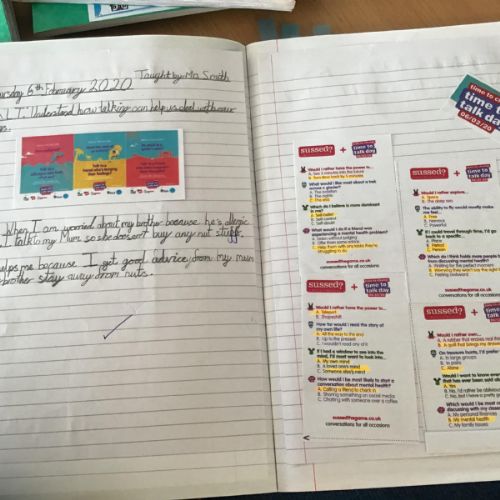 Thursday 6th February 2020
Taught by Mrs Smith
L.I. Understand how talking can help us deal with our
When I am worried about my brother because he's allergic
I talk to my Mum so she doesn't buy any nut stuff.
helps me because I get good advice from my mum
brother stay away from nuts.
time to
talk day
06/02/20
sussed? + time to talk day
Would I rather have the power to...
A. See 5 minutes into the future
B. Turn time back by 5 minutes
What would I like most about a trek across a glacier?
A. The isolation
B. The nature
C. The end
Which do I believe is more dominant in me?
A. Self-belief
B. Self-control
C. Self-doubt
What would I do if a friend was experiencing a mental health problem?
A. Listen without judging
B. Offer them some advice
C. Help them with anything they're struggling to do
sussedthegame.co.uk
conversations for all occasions
sussed? + time to talk day
Would I rather have the power to...
A. Teleport
B. Shapeshift
How far would I read the story of my own life?
A. All the way to the end
B. Up to the present
C. I wouldn't read any of it
If I had a window to see into the mind, I'd most want to look into...
A. My own mind
B. A loved one's mind
C. Someone else's mind
How would I be most likely to start a conversation about mental health?
A. Calling a friend to check in
B. Sharing something on social media
C. Chatting with someone over a coffee
sussedthegame.co.uk
conversations for all occasions
sussed? + time to talk day
Would I rather explore...
A. Space
B. The deep sea
The ability to fly would mostly make me feel...
A. Free
B. Nervous
C. Powerful
If I could travel through time, I'd go back to a specific...
A. Place
B. Period
C. Person
Which do I think holds more people back from discussing mental health?
A. Waiting for the perfect moment
B. Worrying they won't say the right
C. Feeling awkward
sussedthegame.co.uk
conversations for all occasions
sussed? + time to talk day
Would I rather own...
A. A rubber that erases
B. A quill that brings my
On treasure hunts, I'd prefer
A. In large groups
B. In pairs
C. Alone
Would I want to know
that has ever been said
A. Yes
B. No, I'd rather be
C. No, but I have a pretty
Which would I be most
discussing with my
A. My personal finances
B. My mental health
C. My family issues